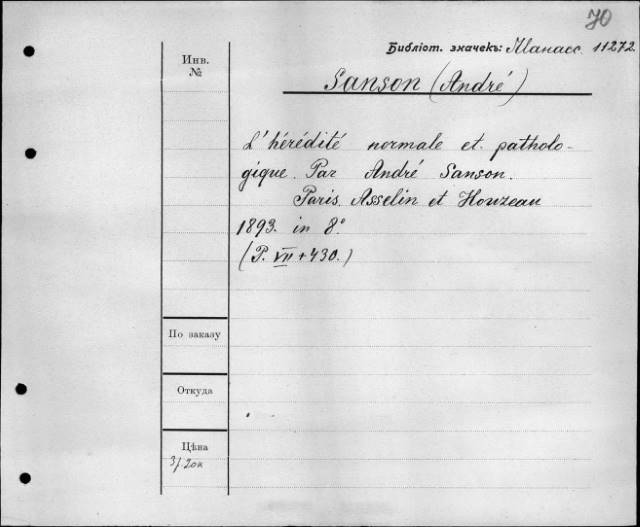 70
Библіот. значекъ: Манасс. 11272.
Инв.
№
Sanson (André)
L'hérédité normale et patholo-
gique. Par André Sanson.
Paris. Asselin et Houzeau
1893. in 8°
(P. VII + 430.)
По заказу
Откуда
Цѣна